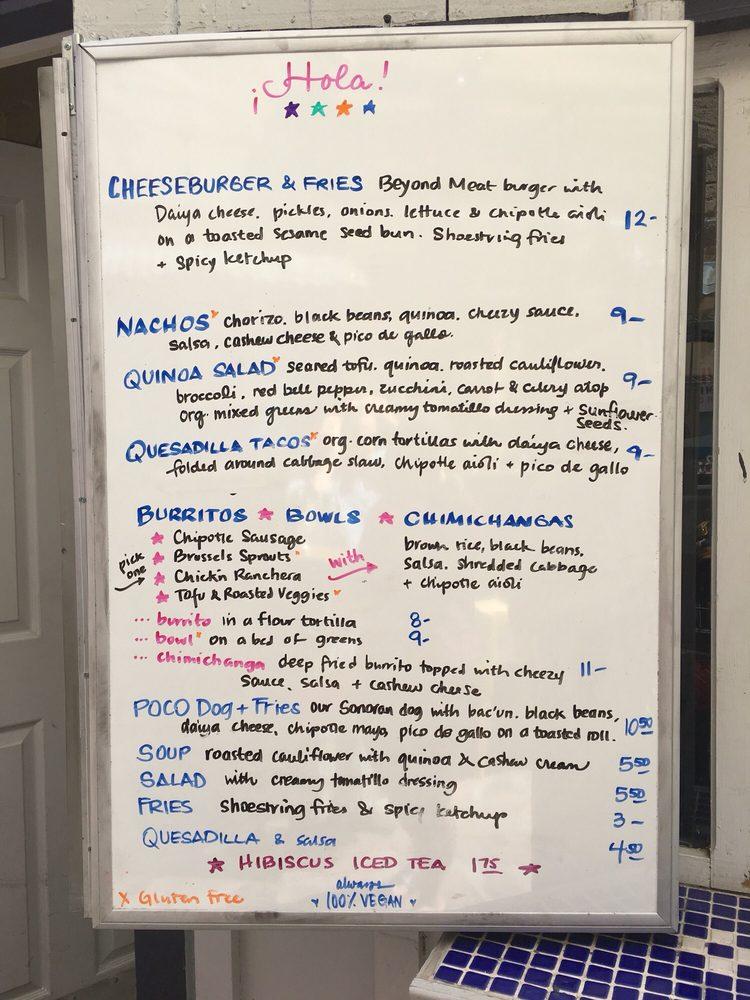 ¡Hola!
CHEESEBURGER & FRIES Beyond Meat burger with
Daiya cheese. pickles, onions. lettuce & chipotle aioli 12-
on a toasted sesame seed bun. Shoestring fries
+ spicy ketchup
NACHOS x chorizo. black beans, quinoa. cheezy sauce. 9-
salsa, cashew cheese & pico de gallo.
QUINOA SALAD x seared tofu. quinoa. roasted cauliflower. 9-
broccoli, red bell pepper, zucchini, carrot & celery atop
org. mixed greens with creamy tomatillo dressing + sunflower
seeds.
QUESADILLA TACOS x org. corn tortillas with daiya cheese, 9-
folded around cabbage slaw, chipotle aioli + pico de gallo
BURRITOS ★ BOWLS ★ CHIMICHANGAS
pick one
★ Chipotle Sausage
★ Brussels Sprouts x
★ Chick'n Ranchera
★ Tofu & Roasted Veggies x
with
brown rice, black beans,
salsa. shredded cabbage
+ chipotle aioli
... burrito in a flour tortilla 8-
... bowl x on a bed of greens 9-
... chimichanga deep fried burrito topped with cheezy 11-
sauce, salsa + cashew cheese
POCO DOG + FRIES our Sonoran dog with bac'un. black beans,
daiya cheese, chipotle mayo, pico de gallo on a toasted roll. 10 50
SOUP roasted cauliflower with quinoa & cashew cream 5 50
SALAD with creamy tomatillo dressing 5 50
FRIES shoestring fries & spicy ketchup 3-
QUESADILLA & salsa 4 50
★ HIBISCUS ICED TEA 1 75 ★
x Gluten Free
always
100% VEGAN